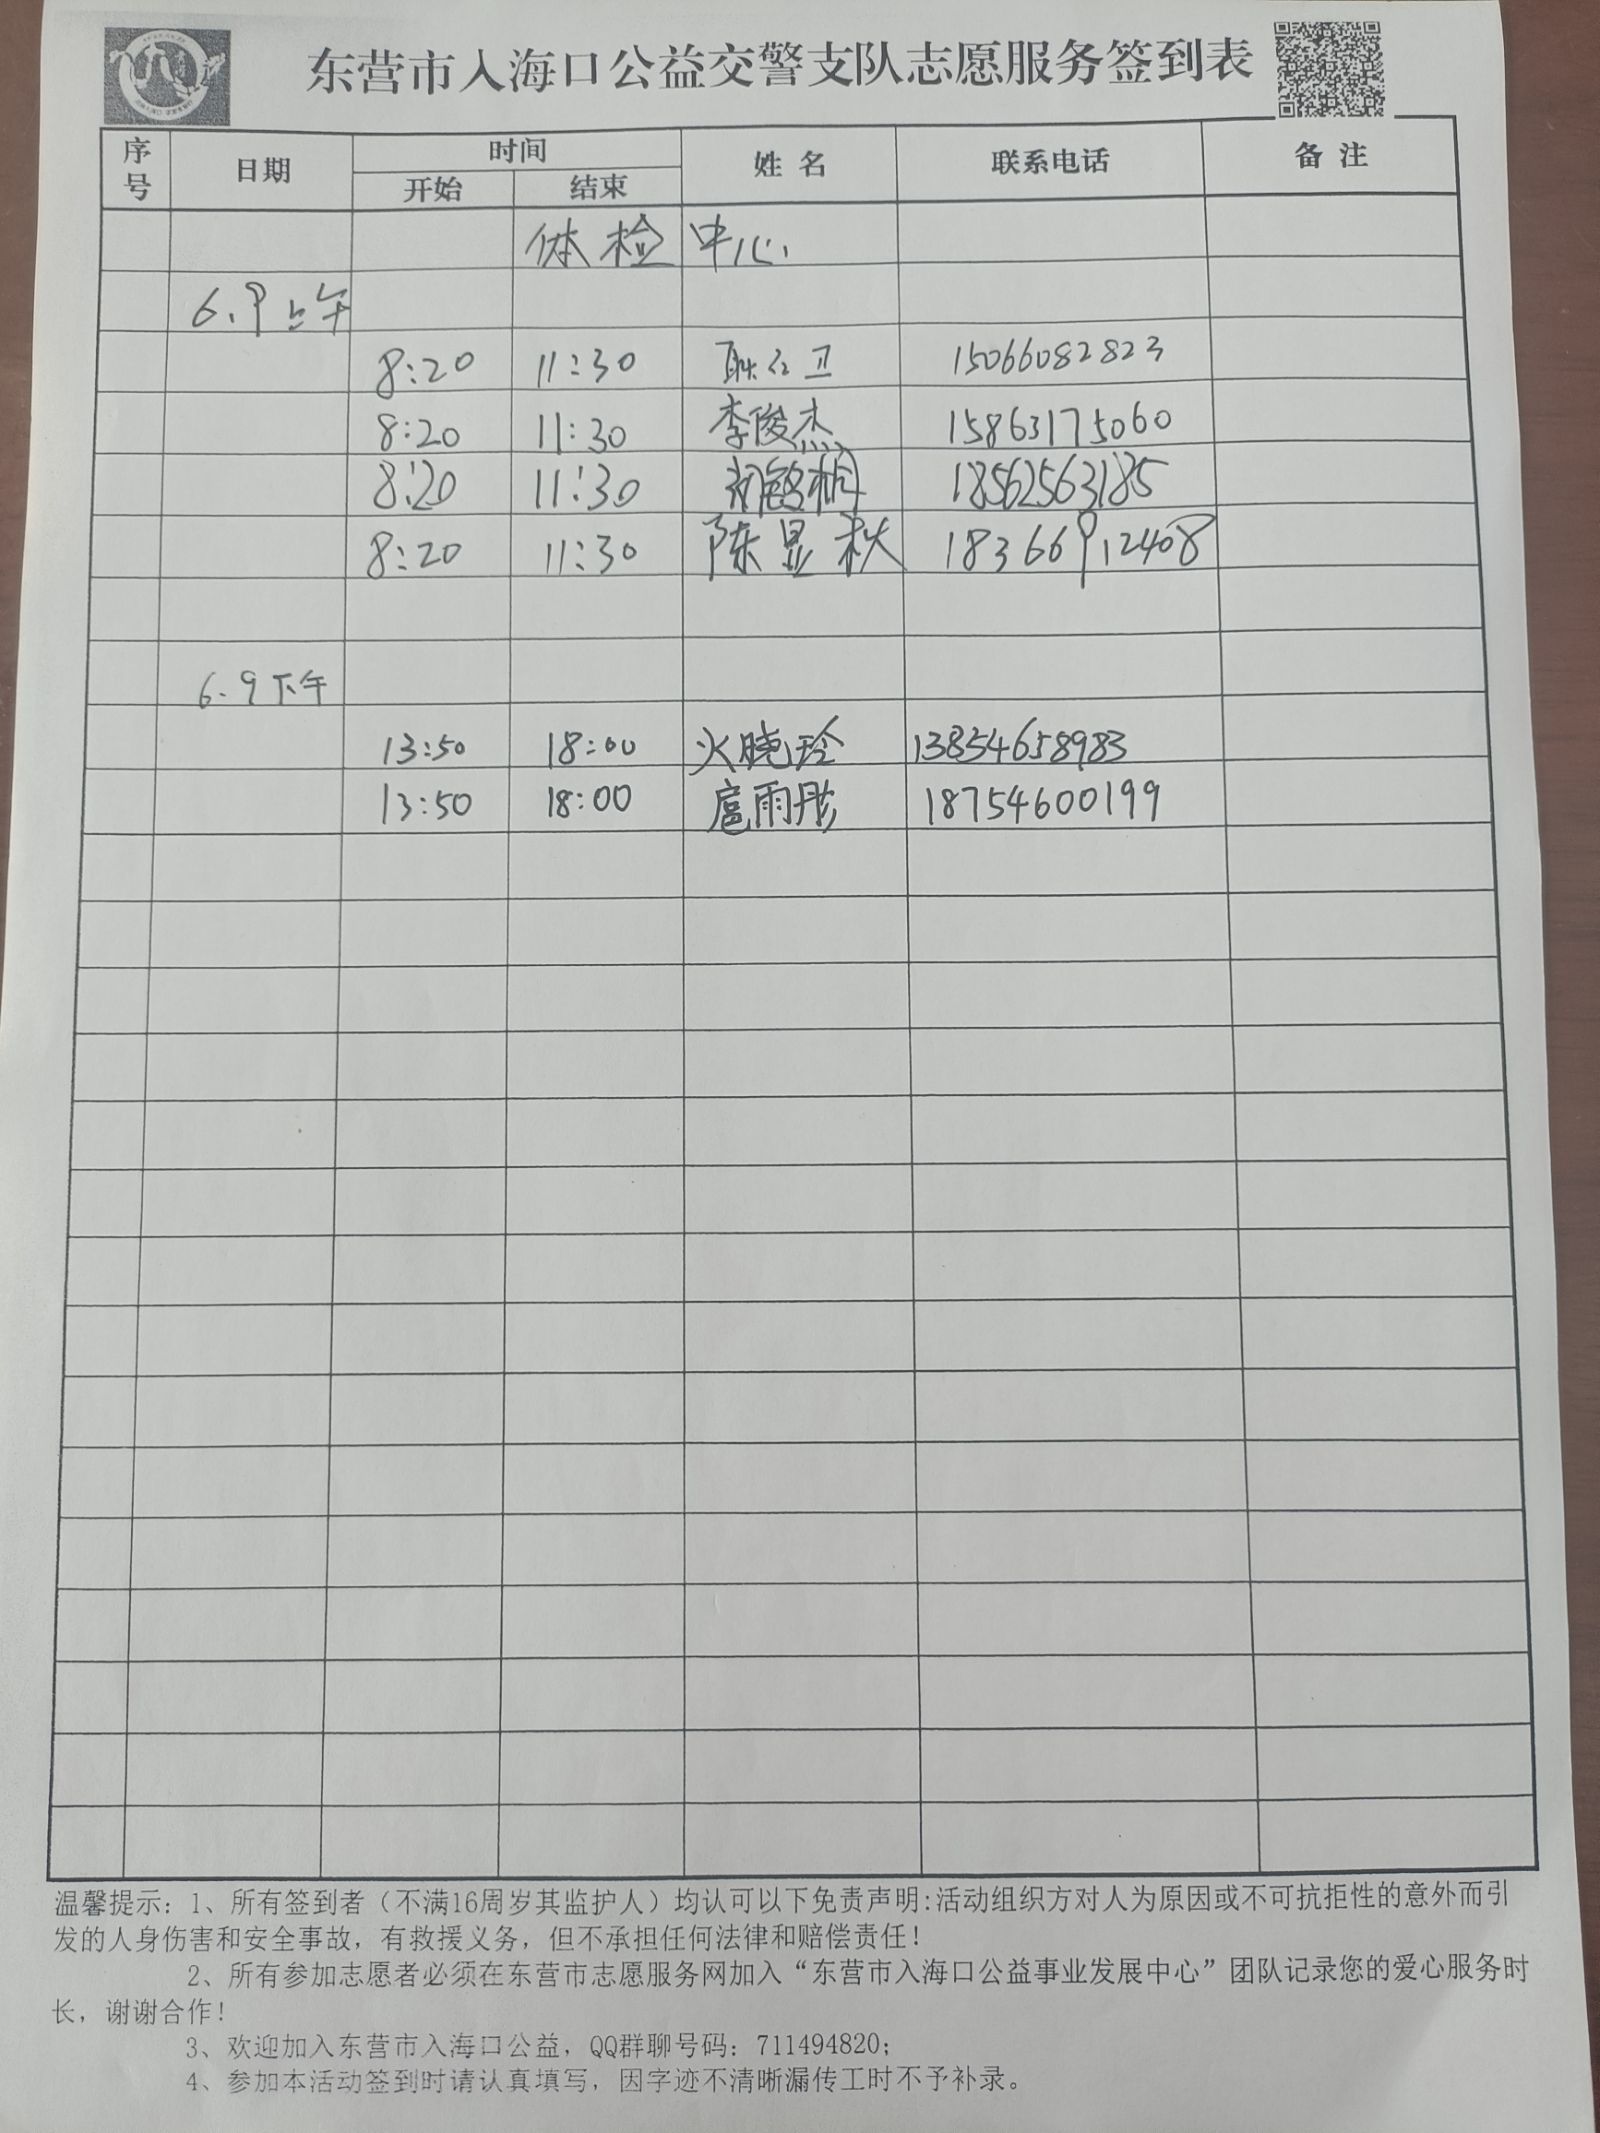 东营市入海口公益交警支队志愿服务签到表
序号 日期 时间 姓名 联系电话 备注
开始 结束
体检中心
6.9上午
8:20 11:30 耿 卫 15066082823
8:20 11:30 李俊杰 15863175060
8:20 11:30 18562563185
8:20 11:30 陈显秋 18366912408
6.9下午
13:50 18:00 火晓玲 13854658983
13:50 18:00 扈雨彤 18754600199
温馨提示：1、所有签到者（不满16周岁其监护人）均认可以下免责声明:活动组织方对人为原因或不可抗拒性的意外而引
发的人身伤害和安全事故，有救援义务，但不承担任何法律和赔偿责任！
2、所有参加志愿者必须在东营市志愿服务网加入“东营市入海口公益事业发展中心”团队记录您的爱心服务时
长，谢谢合作！
3、欢迎加入东营市入海口公益，QQ群聊号码：711494820；
4、参加本活动签到时请认真填写，因字迹不清晰漏传工时不予补录。